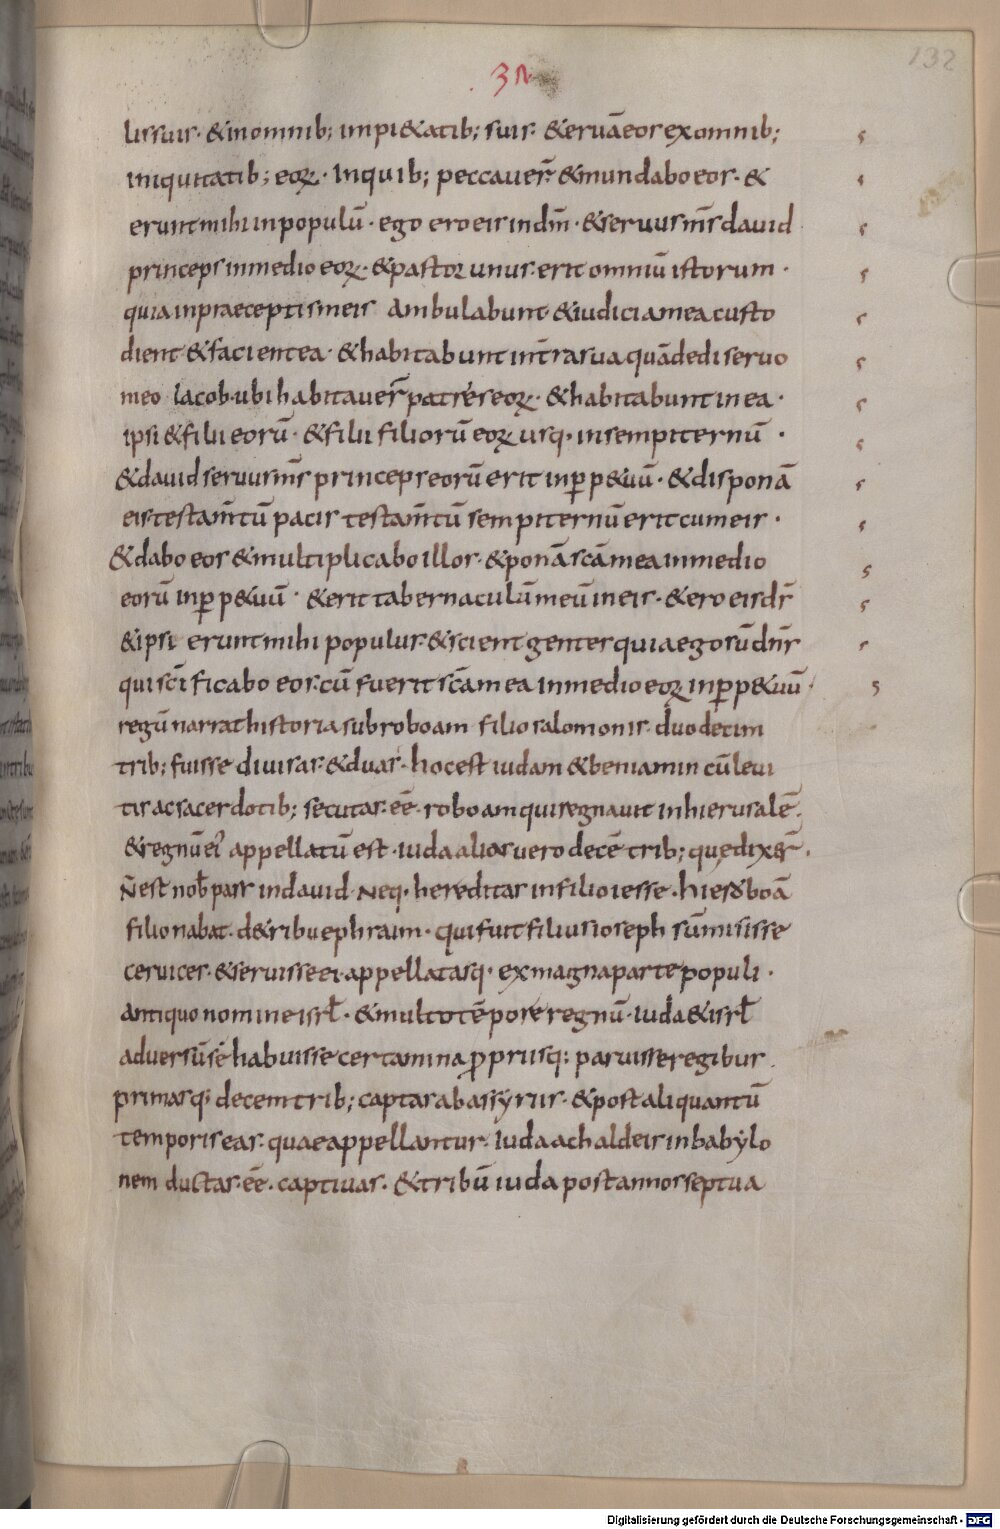 132
32
lis suis · & in omnib; impi&atib; suis · & eruā eos ex omnib;
iniquitatib; eoꝝ · In quib; peccauer̄ & mundabo eos · &
erunt mihi in populū · ego ero eis in dm̄ · & seruus ms̄ dauid
princeps in medio eoꝝ · & pastor unus erit omniū istorum ·
quia in praeceptis meis ambulabunt & iudicia mea custo
dient & facient ea · & habitabunt in tr̄a sua quā dedi seruo
meo Iacob · ubi habitauer̄ patres eoꝝ · & habitabunt in ea ·
ipsi & filii eorū · & filii filiorū eoꝝ usq· in sempiternū ·
& dauid seruus ms̄ princeps eorū erit in ꝑp&uū · & disponā
eis testam̄tū pacis testam̄tū sempiternū erit cum eis ·
& dabo eos & multiplicabo illos · & ponā scām mea in medio
eorū in ꝑp&uū · & erit tabernaculū meū in eis · & ero eis ds̄
& ipsi erunt mihi populus & scient gentes quia ego sū dn̄s
qui sc̄ificabo eos · cū fuerit sc̄am ea in medio eoꝝ in ꝑp&uū ·
regū narrat historia sub roboam filio salomonis · duodecim
trib; fuisse diuisas · & duas · hoc est iudam & beniamin cū leui
tis ac sacerdotib; secutas · eē · roboam qui regnauit in hierusalē ·
& regnū ei' appellatū est · iuda alias uero decē trib; quę dixer̄ ·
N̄ est nob̄ pars in dauid · Neq· hereditas in filio iesse · hieroboā
filio nabat · de tribu ephraim · qui fuit filius ioseph sūmisisse
ceruices · & seruisse ei · appellatasq· ex magna parte populi ·
antiquo nomine isrl̄ · & multo tēpore regnū · iuda & isrl̄
aduersū se habuisse certamina ꝓpriisq; paruisse regibus ·
primasq; decem trib; captas ab assyriis · & post aliquantū
temporis eas · quae appellantur · Iuda a chaldeis in babylo
nem ductas · eē · captiuas · & tribū iuda post annos septua
Digitalisierung gefördert durch die Deutsche Forschungsgemeinschaft - DFG